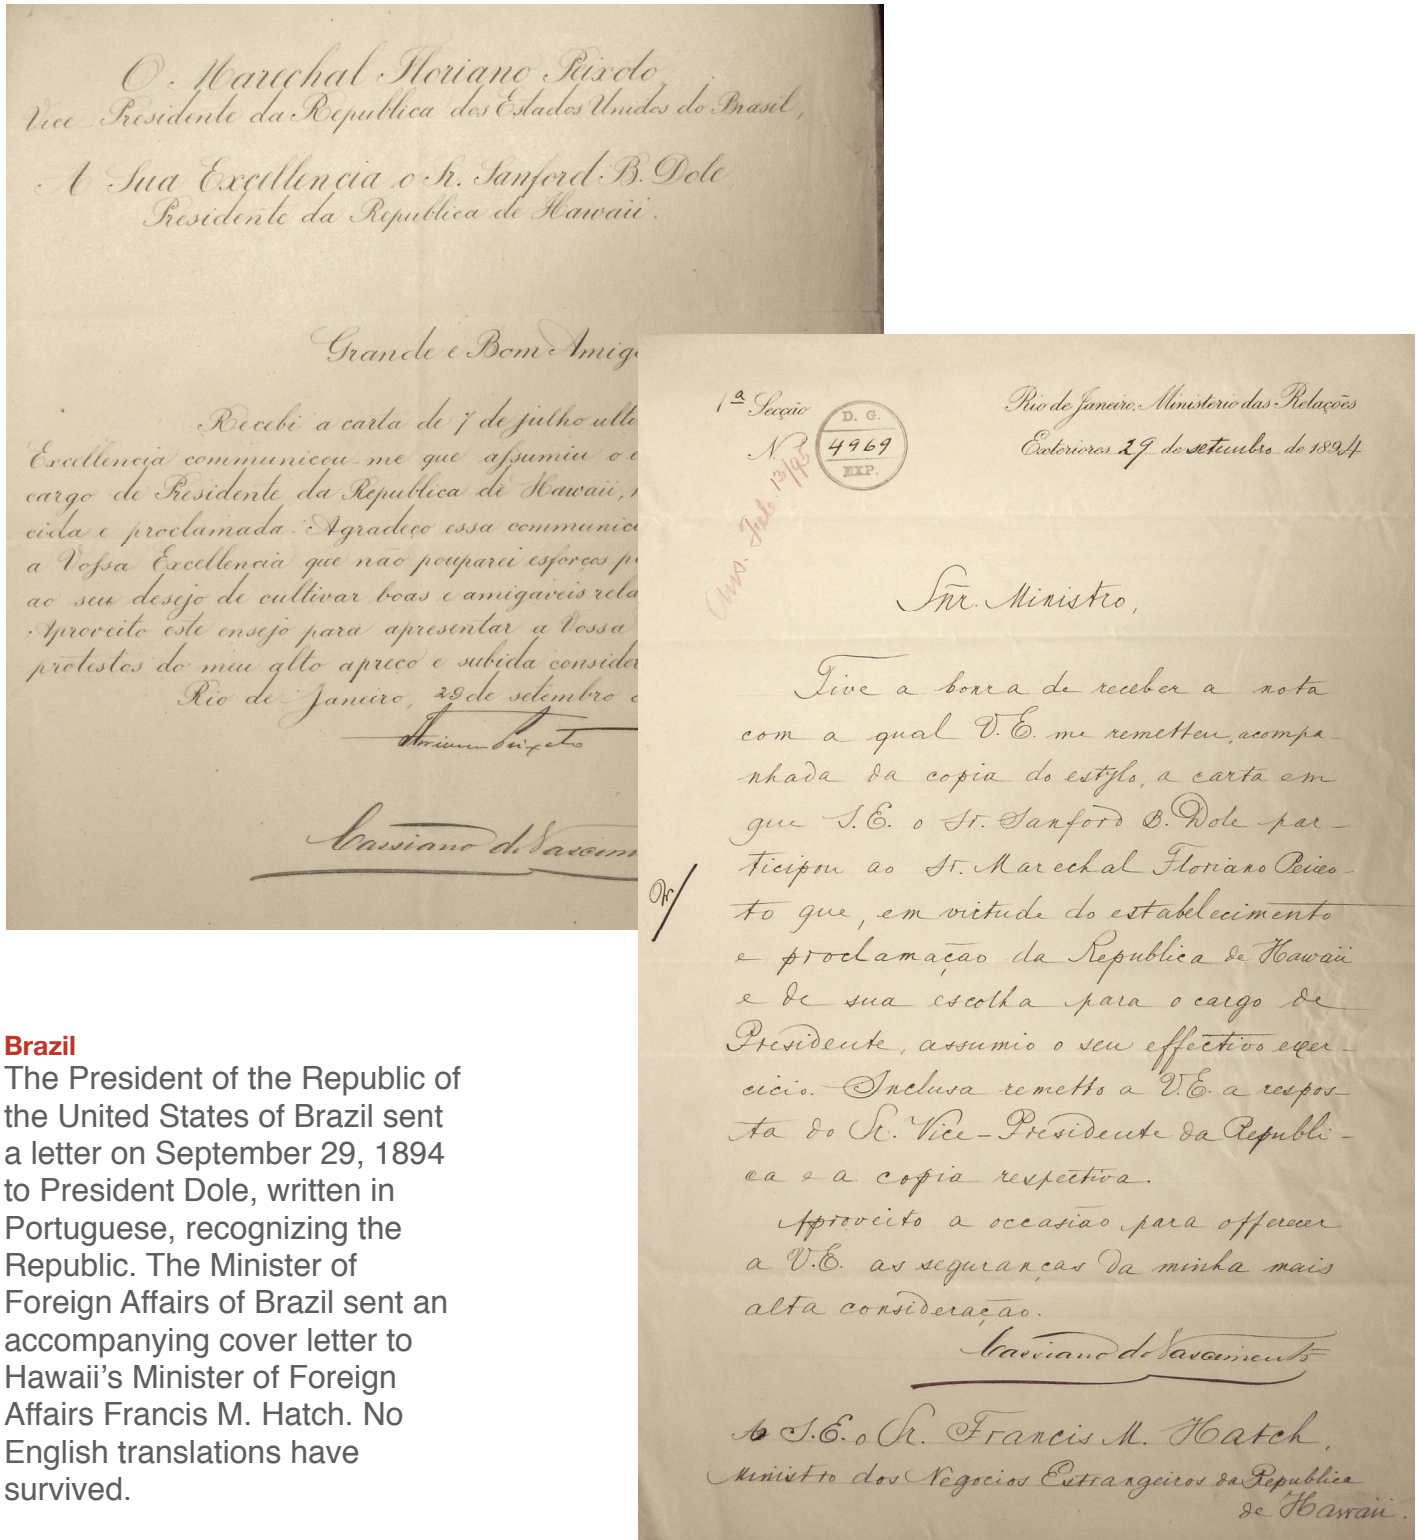 O Marechal Floriano Peixoto,
Vice-Presidente da Republica dos Estados Unidos do Brasil,
A Sua Excellencia o Sr. Sanford B. Dole
Presidente da Republica de Hawaii.
Grande e Bom Amigo
Recebi a carta de 7 de julho
Excellencia communicou-me que assumiu o
cargo de Presidente da Republica de Hawaii,
cida e proclamada. Agradeço essa
a Vossa Excellencia que não pouparei esforços
ao seu desejo de cultivar boas e amigaveis
Aproveito este ensejo para apresentar a Vossa
protestos do meu alto apreço e subida
Rio de Janeiro, 29 de setembro
Floriano Peixoto
Cassiano do
1ª Secção
N.
D. G.
4969
EXP.
Rio de Janeiro. Ministerio das Relações
Exteriores 29 de setembro de 1894
Ans. Feb. 13/95
Snr. Ministro,
Tive a honra de receber a nota
com a qual V.E. me remetteu, acompa-
nhada da copia do estylo, a carta em
que S.E. o Sr. Sanford B. Dole par-
ticipou ao Sr. Marechal Floriano Peixo-
to que, em virtude do estabelecimento
e proclamação da Republica de Hawaii
e de sua escolha para o cargo de
Presidente, assumio o seu effectivo exer-
cicio. Inclusa remetto a V.E. a respos-
ta do Sr. Vice-Presidente da Republi-
ca e a copia respectiva.
Aproveito a occasião para offerecer
a V.E. as seguranças da minha mais
alta consideração.
Cassiano do Nascimento
A S.E. o Sr. Francis M. Hatch,
Ministro dos Negocios Estrangeiros da Republica
de Hawaii.
Brazil
The President of the Republic of
the United States of Brazil sent
a letter on September 29, 1894
to President Dole, written in
Portuguese, recognizing the
Republic. The Minister of
Foreign Affairs of Brazil sent an
accompanying cover letter to
Hawaii's Minister of Foreign
Affairs Francis M. Hatch. No
English translations have
survived.